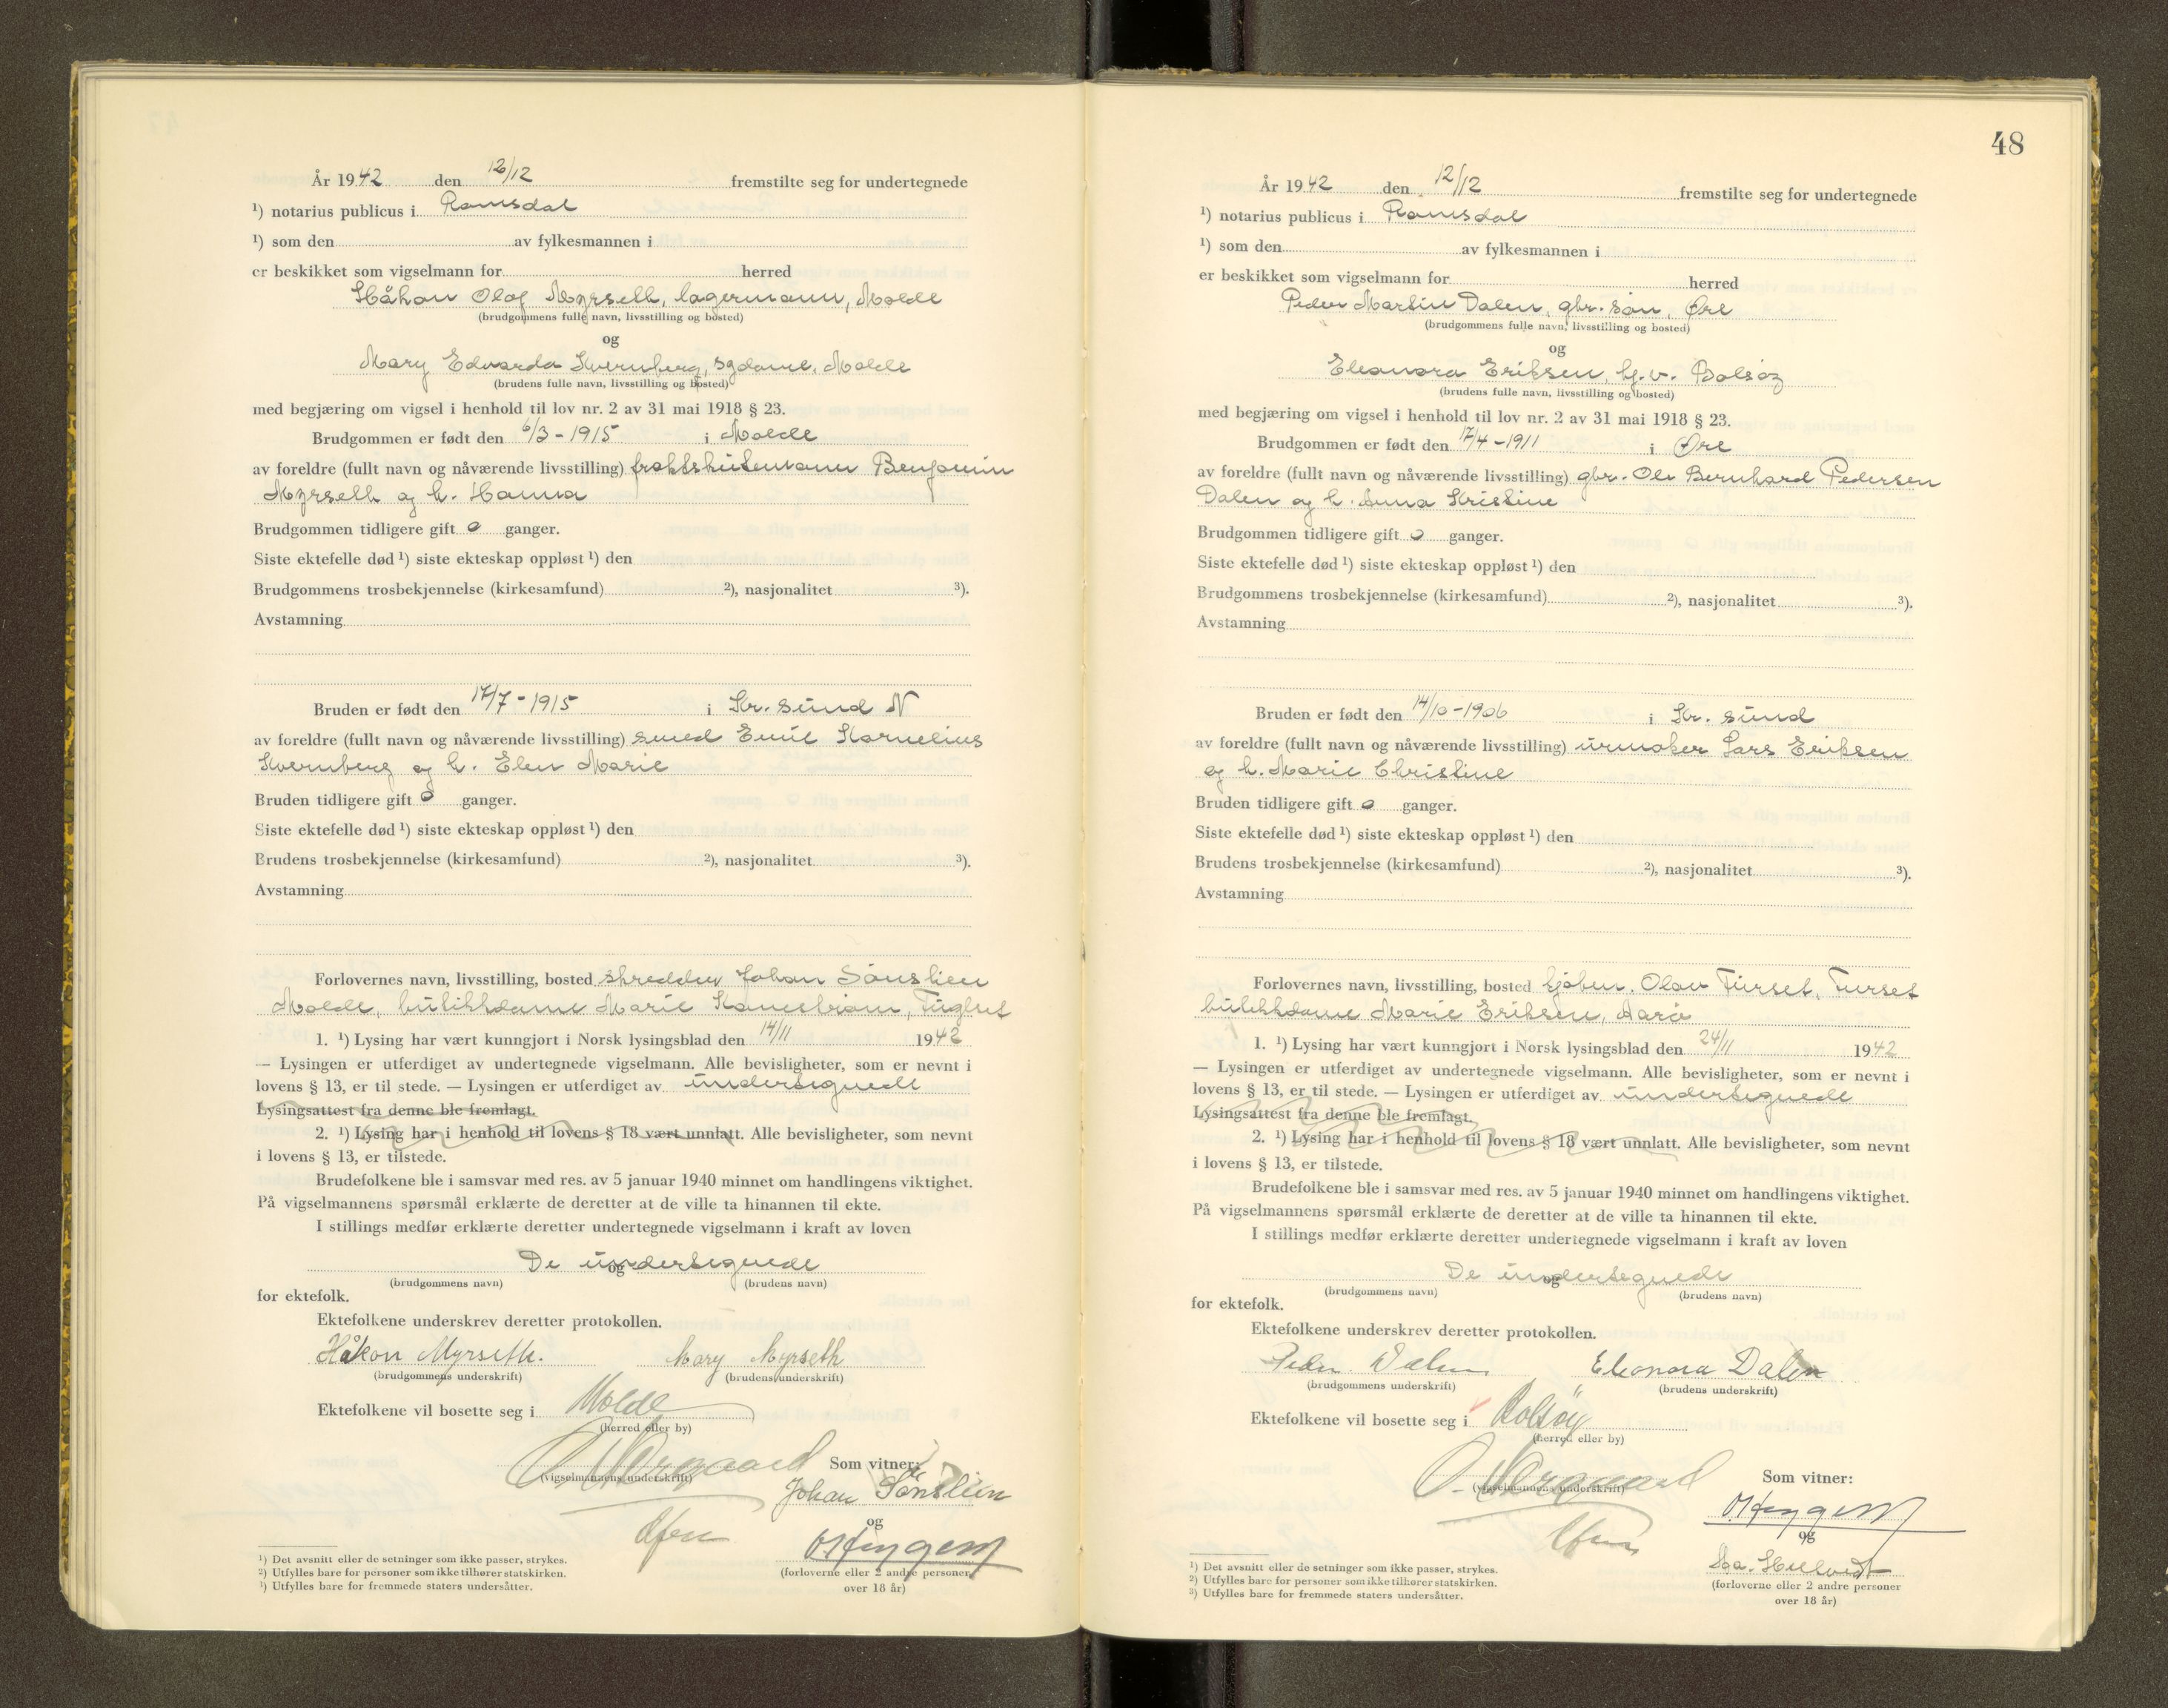 År 1942 den 12/12 fremstilte seg for undertegnede
¹) notarius publicus i Romsdal
¹) som den av fylkesmannen i
er beskikket som vigselmann for herred
Håkon Olaf Myrseth, lagermann, Molde
(brudgommens fulle navn, livsstilling og bosted)
og
Mary Edvarda Kvernberg, sydame, Molde
(brudens fulle navn, livsstilling og bosted)
med begjæring om vigsel i henhold til lov nr. 2 av 31 mai 1918 § 23.
Brudgommen er født den 6/3-1915 i Molde
av foreldre (fullt navn og nåværende livsstilling) fraktskutemann Benjamin
Myrseth og h. Hanna
Brudgommen tidligere gift 0 ganger.
Siste ektefelle død ¹) siste ekteskap oppløst ¹) den
Brudgommens trosbekjennelse (kirkesamfund) ²), nasjonalitet ³).
Avstamning
Bruden er født den 17/7-1915 i Kr.sund N
av foreldre (fullt navn og nåværende livsstilling) smed Emil Kornelius
Kvernberg og h. Elen Marie
Bruden tidligere gift 0 ganger.
Siste ektefelle død ¹) siste ekteskap oppløst ¹) den
Brudens trosbekjennelse (kirkesamfund) ²), nasjonalitet ³).
Avstamning
Forlovernes navn, livsstilling, bosted skredder Johan Sönslien
Molde, butikkdame Marie
1. ¹) Lysing har vært kunngjort i Norsk lysingsblad den 14/11 1942
— Lysingen er utferdiget av undertegnede vigselmann. Alle bevisligheter, som er nevnt i
lovens § 13, er til stede. — Lysingen er utferdiget av undertegnede
Lysingsattest fra denne ble fremlagt.
2. ¹) Lysing har i henhold til lovens § 18 vært unnlatt. Alle bevisligheter, som nevnt
i lovens § 13, er tilstede.
Brudefolkene ble i samsvar med res. av 5 januar 1940 minnet om handlingens viktighet.
På vigselmannens spørsmål erklærte de deretter at de ville ta hinannen til ekte.
I stillings medfør erklærte deretter undertegnede vigselmann i kraft av loven
De undertegnede
og
(brudgommens navn) (brudens navn)
for ektefolk.
Ektefolkene underskrev deretter protokollen.
Håkon Myrseth. Mary Myrseth
(brudgommens underskrift) (brudens underskrift)
Ektefolkene vil bosette seg i Molde
(herred eller by)
(vigselmannens underskrift)
Som vitner:
Johan Sönslien
og
(forloverne eller 2 andre personer
over 18 år)
¹) Det avsnitt eller de setninger som ikke passer, strykes.
²) Utfylles bare for personer som ikke tilhører statskirken.
³) Utfylles bare for fremmede staters undersåtter.
48
År 1942 den 12/12 fremstilte seg for undertegnede
¹) notarius publicus i Romsdal
¹) som den av fylkesmannen i
er beskikket som vigselmann for herred
Peder Martin Dalen, gbr.søn, Øre
(brudgommens fulle navn, livsstilling og bosted)
og
Eleonora Eriksen, hj.v. Bolsøy
(brudens fulle navn, livsstilling og bosted)
med begjæring om vigsel i henhold til lov nr. 2 av 31 mai 1918 § 23.
Brudgommen er født den 17/4-1911 i Øre
av foreldre (fullt navn og nåværende livsstilling) gbr. Ole Bernhard Pedersen
Dalen og h. Anna Kristine
Brudgommen tidligere gift 0 ganger.
Siste ektefelle død ¹) siste ekteskap oppløst ¹) den
Brudgommens trosbekjennelse (kirkesamfund) ²), nasjonalitet ³).
Avstamning
Bruden er født den 14/10-1906 i Kr.sund
av foreldre (fullt navn og nåværende livsstilling) urmaker Lars Eriksen
og h. Marie Christine
Bruden tidligere gift 0 ganger.
Siste ektefelle død ¹) siste ekteskap oppløst ¹) den
Brudens trosbekjennelse (kirkesamfund) ²), nasjonalitet ³).
Avstamning
Forlovernes navn, livsstilling, bosted kjøbm. Olav Furset, Furset
butikkdame Marie Eriksen, Aarø
1. ¹) Lysing har vært kunngjort i Norsk lysingsblad den 24/11 1942
— Lysingen er utferdiget av undertegnede vigselmann. Alle bevisligheter, som er nevnt i
lovens § 13, er til stede. — Lysingen er utferdiget av undertegnede
Lysingsattest fra denne ble fremlagt.
2. ¹) Lysing har i henhold til lovens § 18 vært unnlatt. Alle bevisligheter, som nevnt
i lovens § 13, er tilstede.
Brudefolkene ble i samsvar med res. av 5 januar 1940 minnet om handlingens viktighet.
På vigselmannens spørsmål erklærte de deretter at de ville ta hinannen til ekte.
I stillings medfør erklærte deretter undertegnede vigselmann i kraft av loven
De undertegnede
og
(brudgommens navn) (brudens navn)
for ektefolk.
Ektefolkene underskrev deretter protokollen.
Peder Dalen Eleonora Dalen
(brudgommens underskrift) (brudens underskrift)
Ektefolkene vil bosette seg i Bolsøy
(herred eller by)
(vigselmannens underskrift)
Som vitner:
og
(forloverne eller 2 andre personer
over 18 år)
¹) Det avsnitt eller de setninger som ikke passer, strykes.
²) Utfylles bare for personer som ikke tilhører statskirken.
³) Utfylles bare for fremmede staters undersåtter.